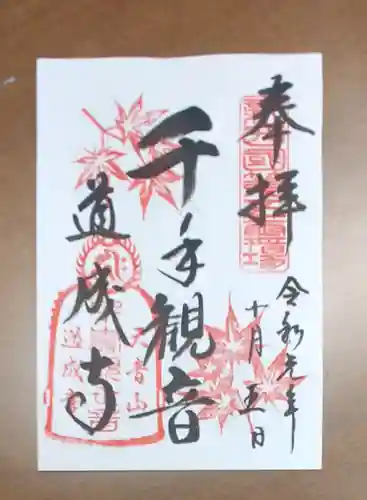 奉拝
令和元年
十月五日
千手観音
道成寺
天音山
道成寺